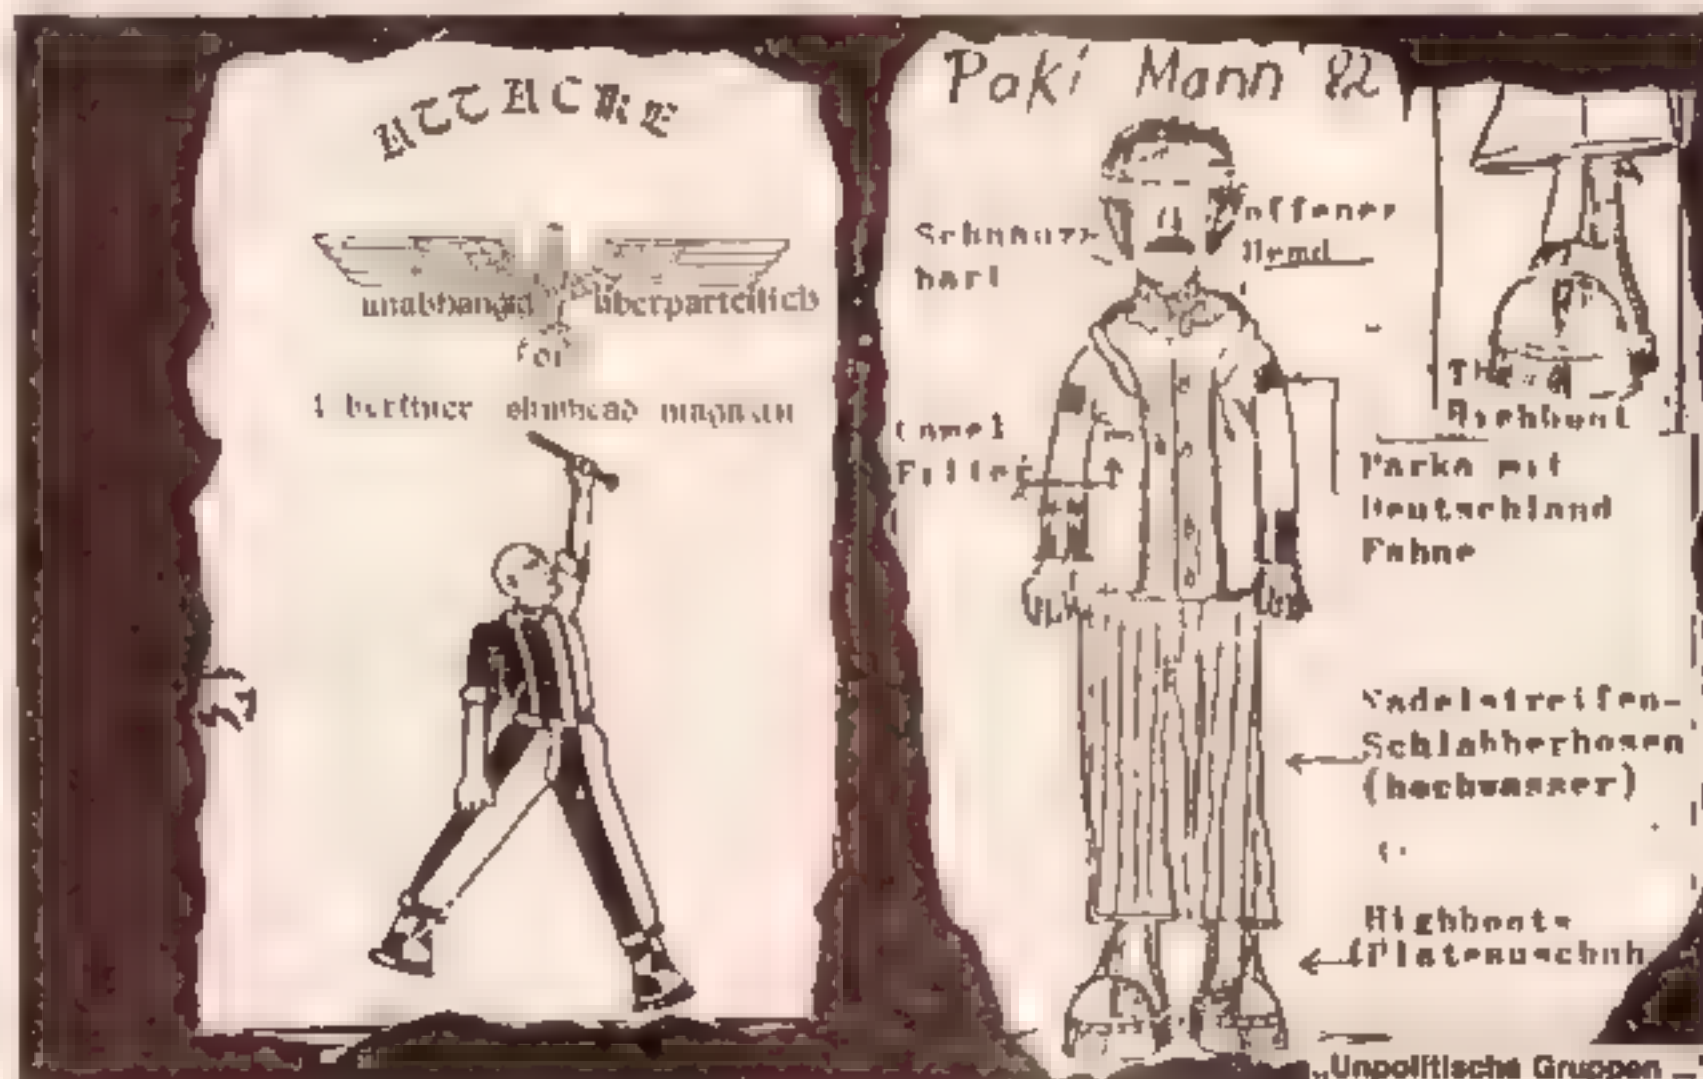 ATTACKE
unabhängig überparteilich
1 berliner skinhead magazin
Paki Mann 82
Schnauz-
bart
offener
Hemd
Camel
Filter
Highboot
Parka mit
Deutschland
Fahne
Nadelstreifen-
Schlabberhosen
(hochwasser)
Highboots
(Plateauschuh
„Unpolitische Gruppen –